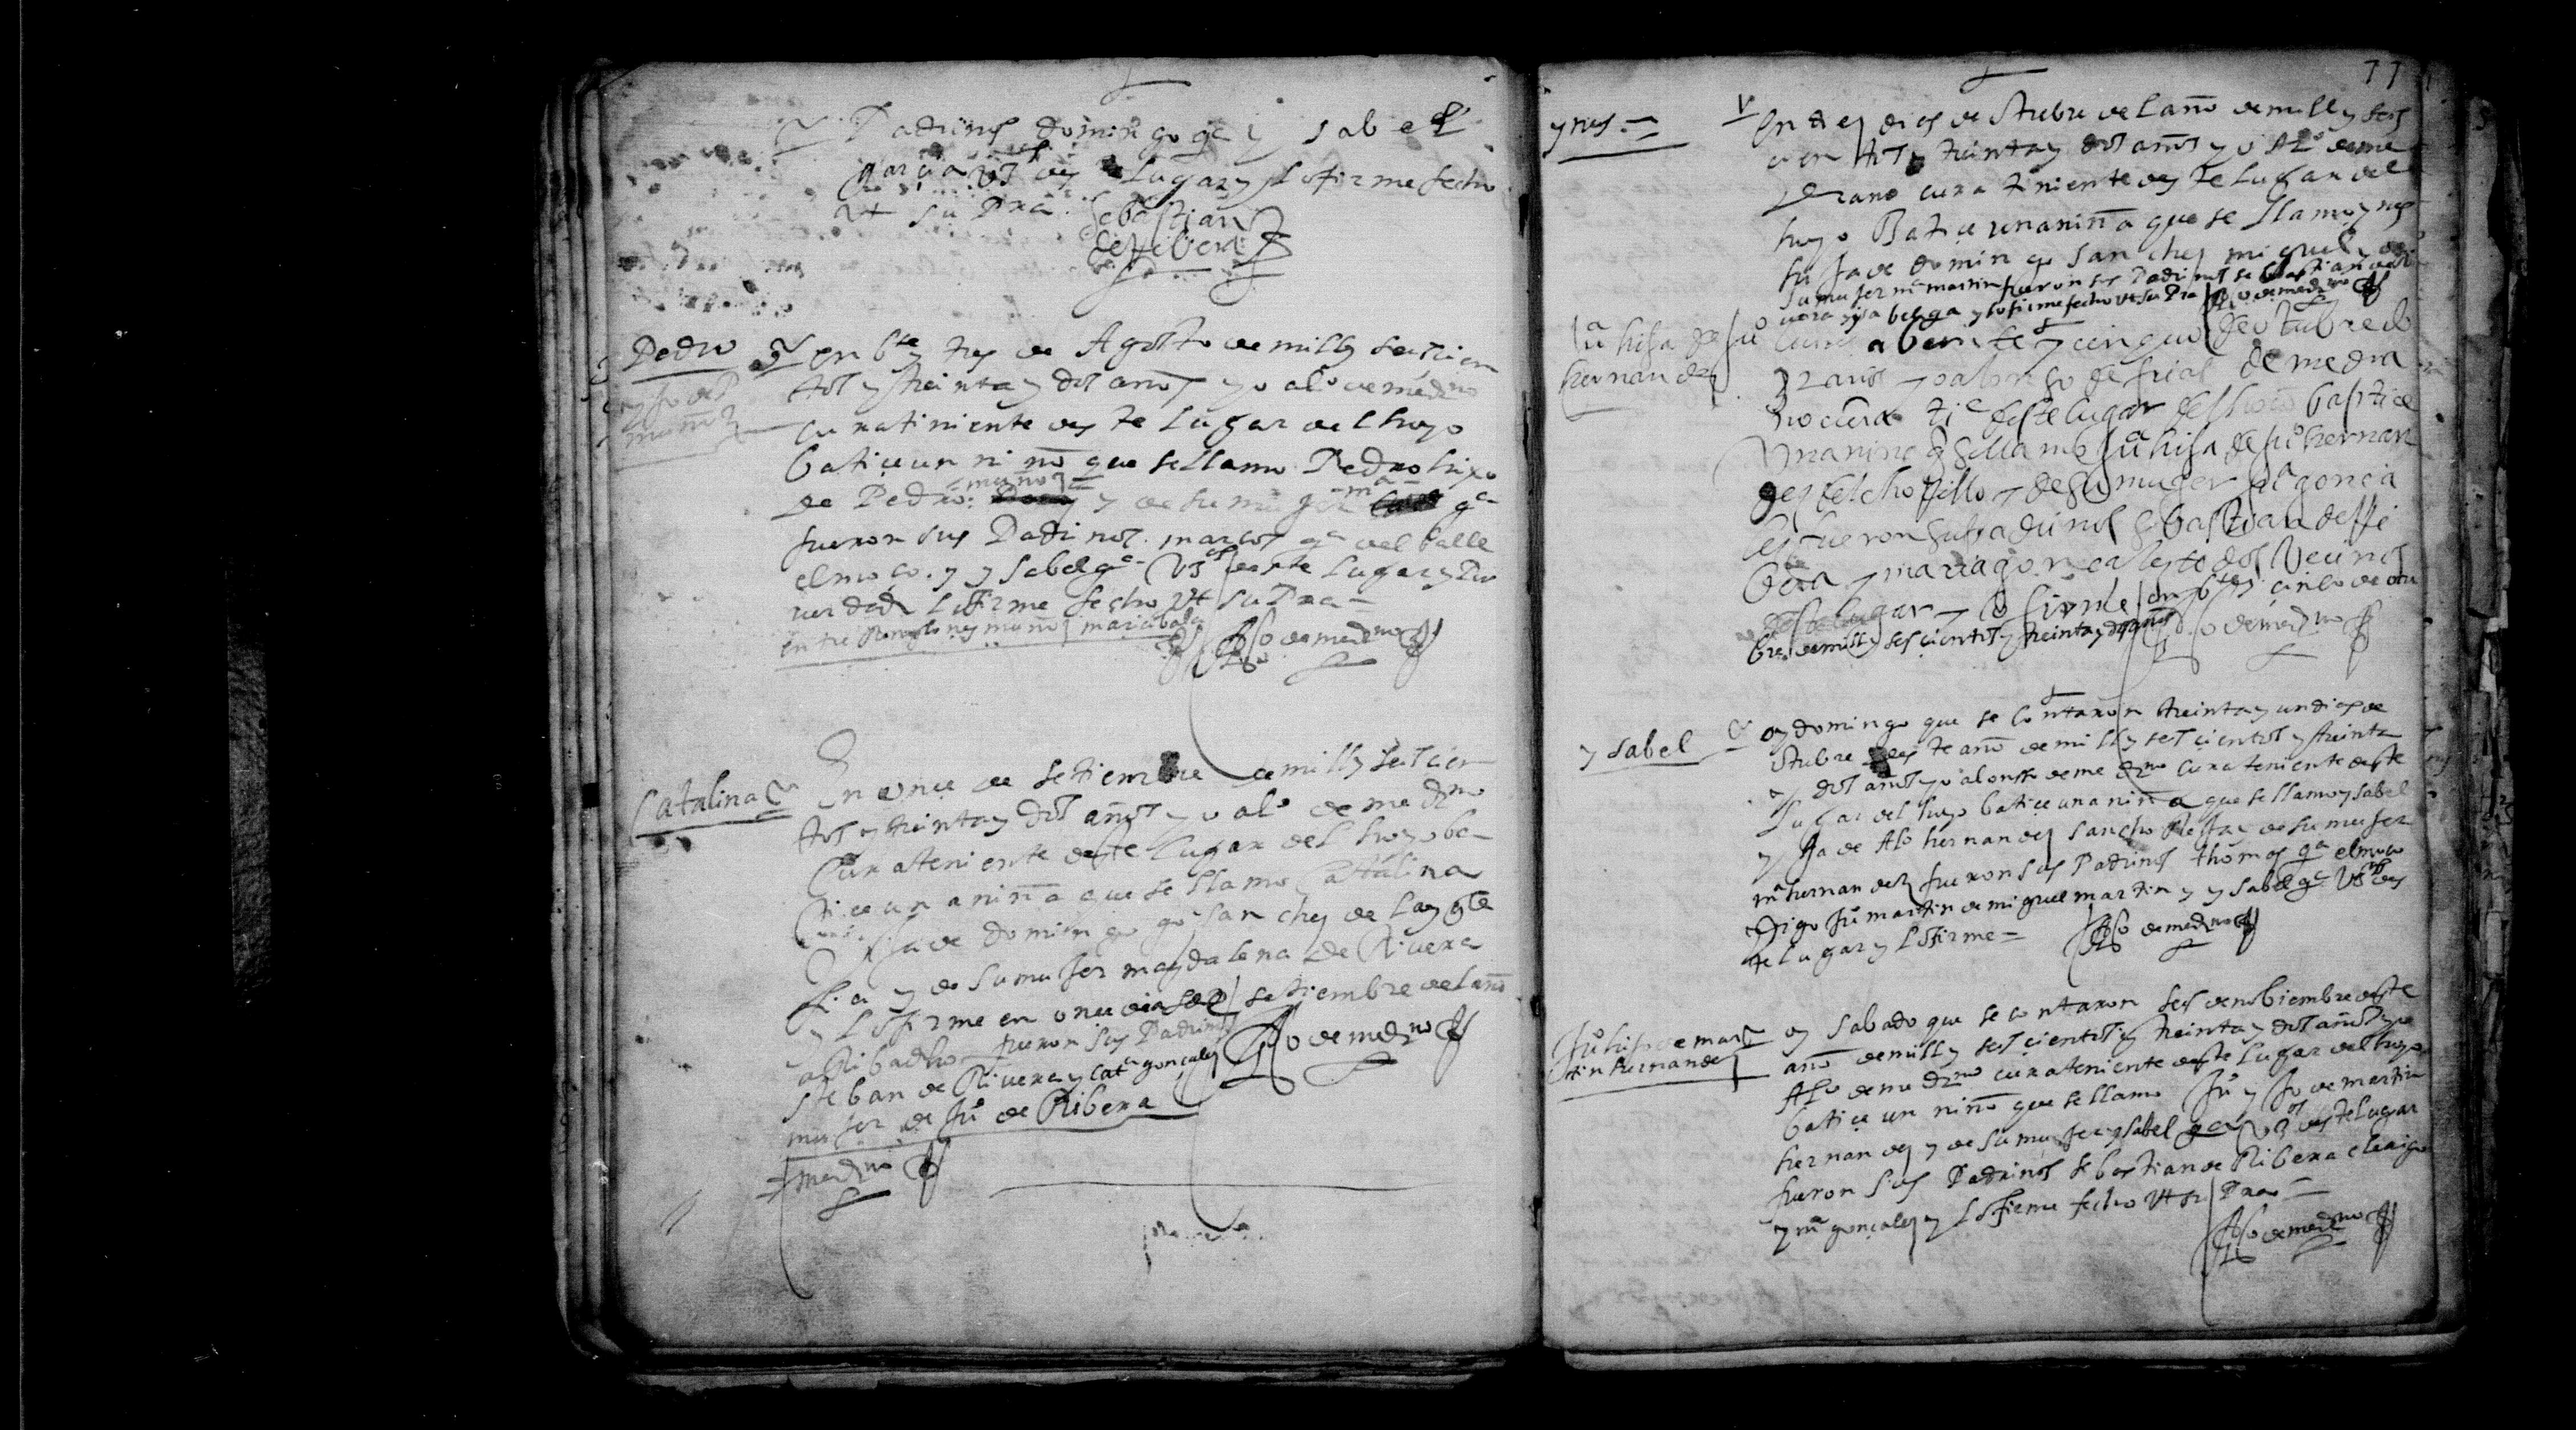 Padrinos domingo ga y sabel
garcia vos des lugar y lo firme fecho
ut supra
Sebastian
de Ribera
Pedro
yjo de P
munoz
en bte y tres de Agosto de mill y seiscien
tos y treinta y dos anos yo alo de medrno
cura tiniente des te lugar del hoyo
batiçe un nino que se llamo Pedro hixo
de Pedro munoz y de su muger ma ga
fueron sus Padrinos marcos ga del balle
el moço y ysabel ga vos deste lugar y por
verdad lo firme fecho ut supra =
entre Renglones munoz maria bala
Alo de medrno
Catalina
En onçe de setiembre de mill y seiscien
tos y treinta y dos años yo alo de medrno
Cura teniente deste lugar del hoyo ba
tiçe una niña que se llamo Catalina
yja de domingo go sanchez de la ygle
sia y de su mujer magdalena de Rivera
y lo firme en onçe dias de setiembre del año
aRiba dho fueron sus Padrinos
steban de Rivera y cata gonçalez
mujer de Ju de Ribera
Alo de medrno
medrno
77
ynes =
En diez dias de otubre del año de mill y seis
cientos y treinta y dos años yo Alo de me
drano cura tiniente des te lugar del
hoyo Batiçe una niña que se llamo ynes
hija de domingo sanchez miguel y de
su mujer ma martin fueron sus Padrinos sebastian de Ri
vera y ysabel ga y lo firme fecho ut supra Alo de medrno
Jua hija de Juo
hernandez
lunes a beinte y cinquo de otubre do
yo alonso de frias de medra
no cura tie deste lugar del hoio baptiçe
una nina q se llamo Jua hija de Juo hernan
dez del chopillo y de su muger gonça
lez fueron sus padrinos sebastian de Ri
bera y maria gonçalez todos Veçinos
deste lugar y lo firme en bte y cinco de otu
bre de mill y seiscientos y treinta y dos años Alo de medrno
ysabel
oy domingo que se contaron treinta y un dias de
otubre des te año de mill y seiscientos y treinta
y dos años yo alonso de medrno cura teniente deste
lugar del hoyo batiçe una niña que se llamo ysabel
yja de Alo hernandez sancho y de su mujer
ma hernandez fueron sus Padrinos thomas ga el moço
digo Ju martin de miguel martin y ysabel ga vos des
te lugar y lo firme =
Alo de medrno
Juo hijo de mar
tin hernandez
oy sabado que se contaron seis de nobiembre deste
año de mill y seiscientos y treinta y dos años yo
Alo de medrno cura teniente deste lugar del hoyo
batiçe un niño que se llamo Juo yjo de martin
hernandez y de su mujer ysabel ga vos deste lugar
fueron sus Padrinos sebastian de Ribera clerigo
y ma gonçalez y lo firme fecho ut supra =
Alo de medrno